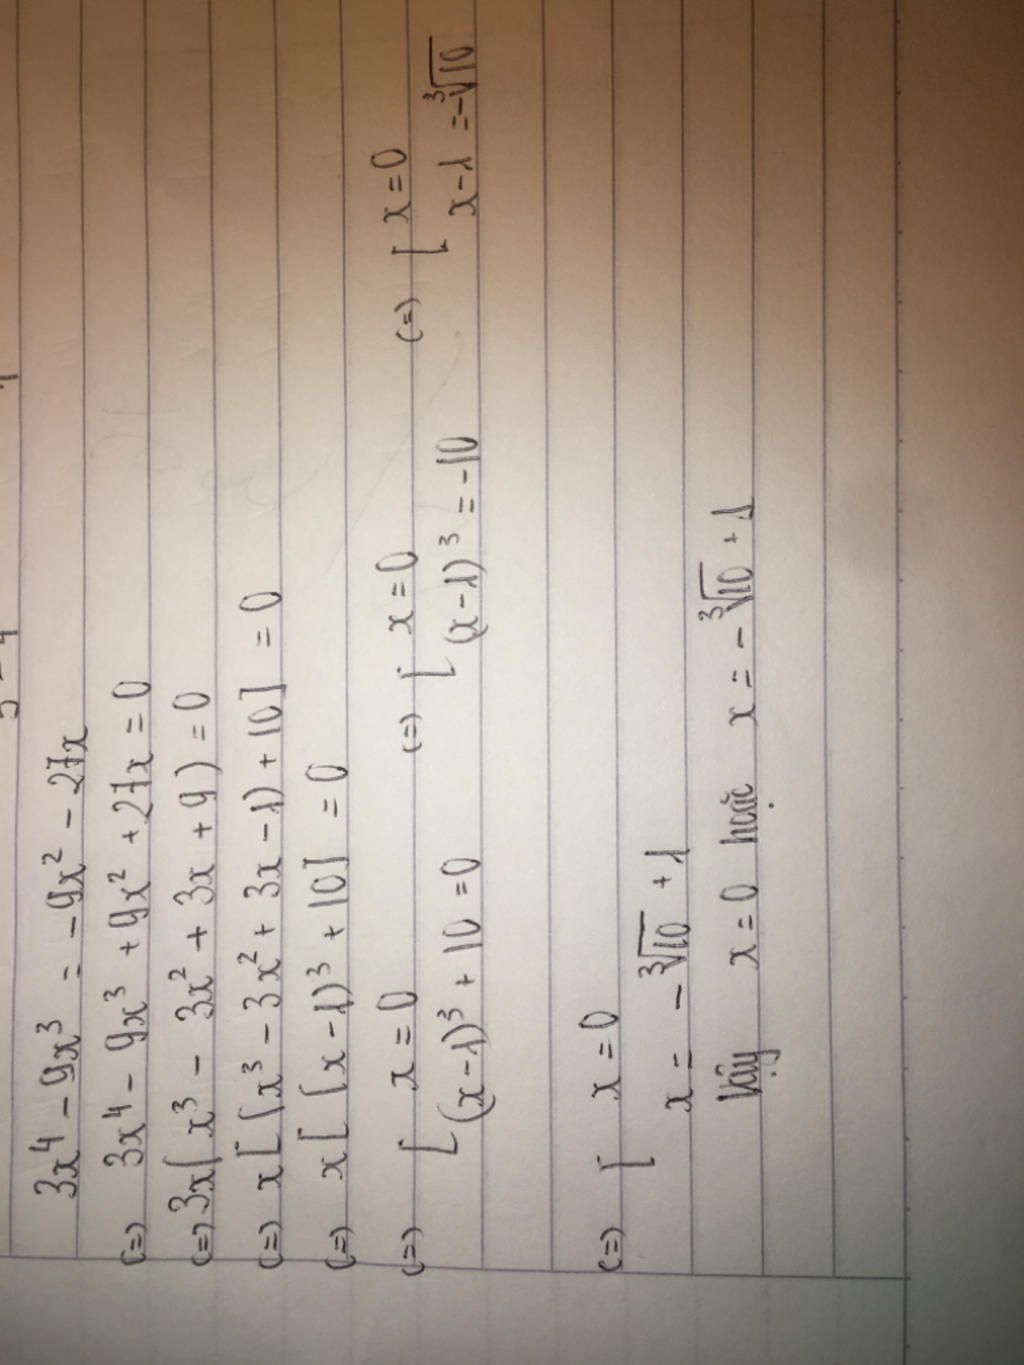 3x⁴ - 9x³ = -9x² - 27x
(=) 3x⁴ - 9x³ + 9x² + 27x = 0
(=) 3x(x³ - 3x² + 3x + 9) = 0
(=) x[(x³ - 3x² + 3x - 1) + 10] = 0
(=) x[(x-1)³ + 10] = 0
(=) [ x = 0 (=) [ x = 0 (=) [ x = 0
(x-1)³ + 10 = 0 (x-1)³ = -10 x-1 = -∛10
(=) [ x = 0
x = -∛10 + 1
Vậy x = 0 hoặc x = -∛10 + 1